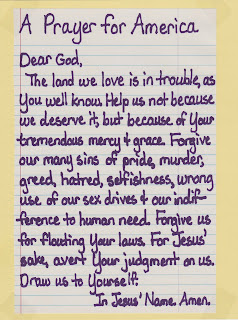 A Prayer for America
Dear God,
The land we love is in trouble, as
You well know. Help us not because
we deserve it, but because of Your
tremendous mercy & grace. Forgive
our many sins of pride, murder,
greed, hatred, selfishness, wrong
use of our sex drives & our indif-
ference to human need. Forgive us
for flouting Your laws. For Jesus'
sake, avert Your judgment on us.
Draw us to Yourself.
In Jesus' Name. Amen.